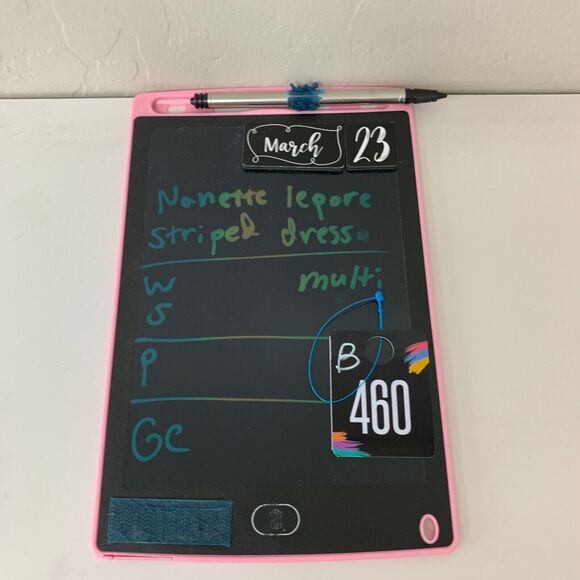 March 23
Nanette lepore
striped dress
W multi
S
P
B
460
GC